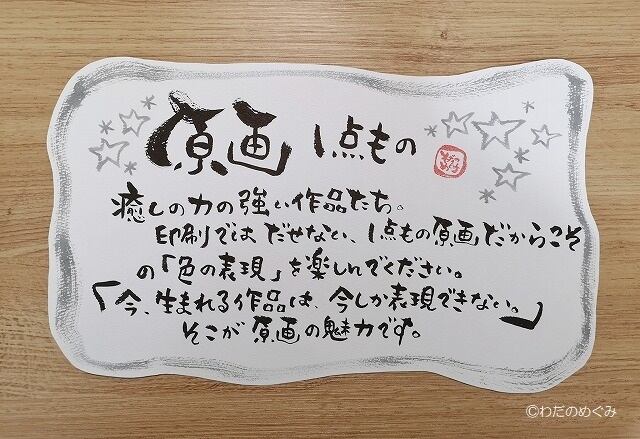 原画 1点もの
癒しの力の強い作品たち。
印刷ではだせない、1点もの原画だからこそ
の「色の表現」を楽しんでください。
「今、生まれる作品は、今しか表現できない。」
そこが原画の魅力です。
©わだのめぐみ